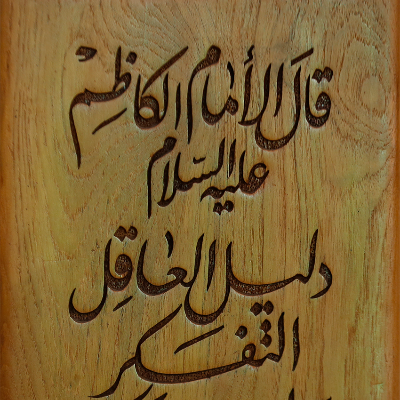 قَالَ الأمَام الكَاظِمْ
عليه السَّلام
دليل العَاقِل
التَّفكر